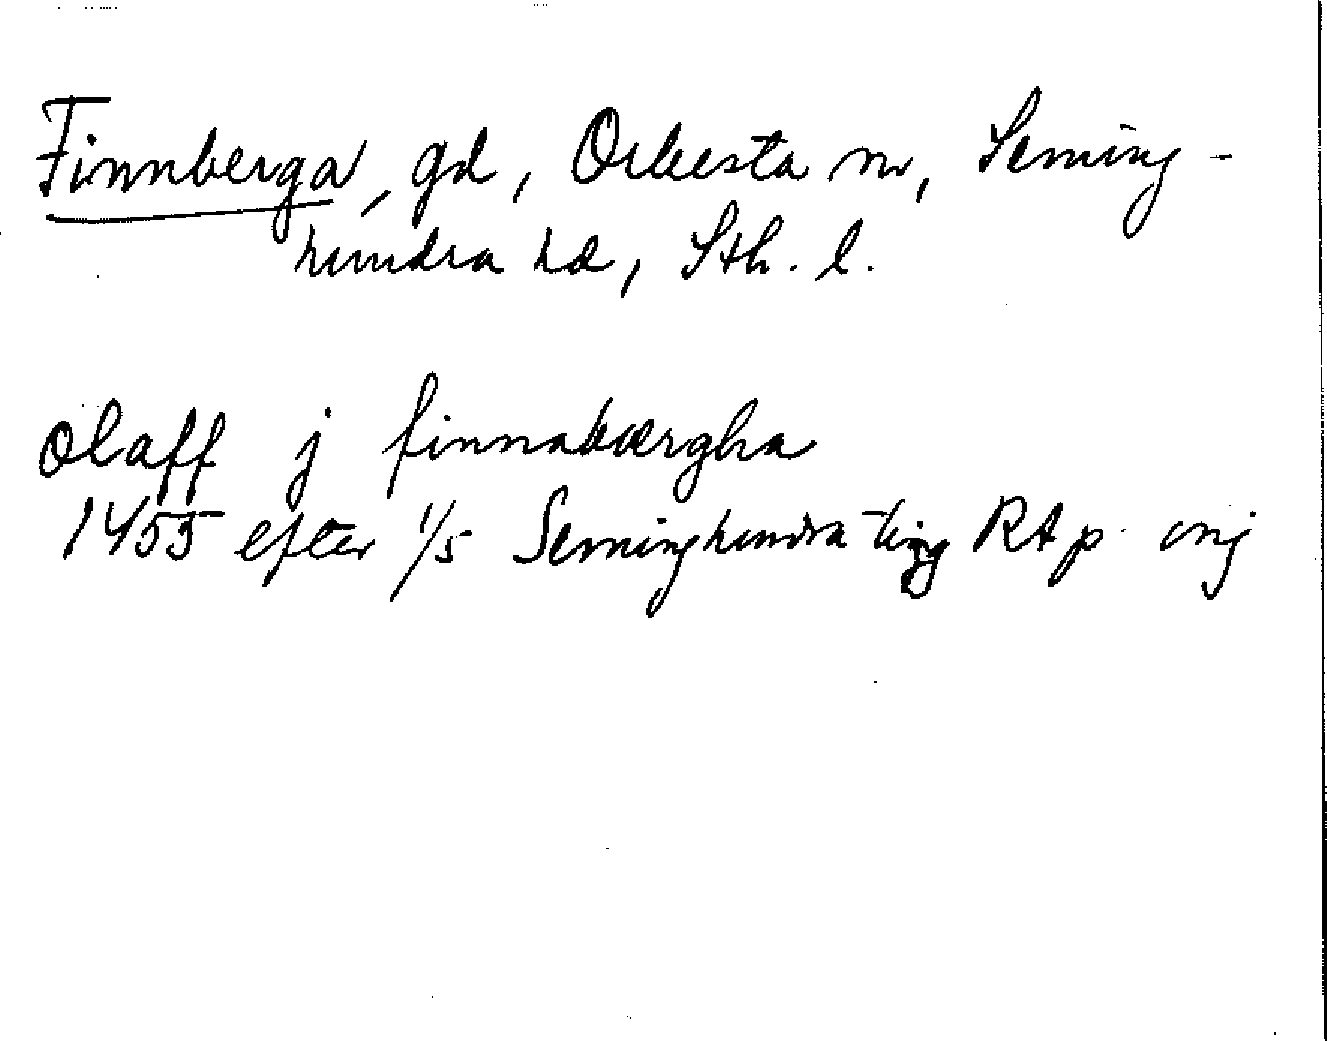 Finnberga, gd, Orkesta sn, Seming-
hundra hd, Sth. l.
olaff j finnabærgha
1455 efter 1/5 Seminghundra ting RAp orig